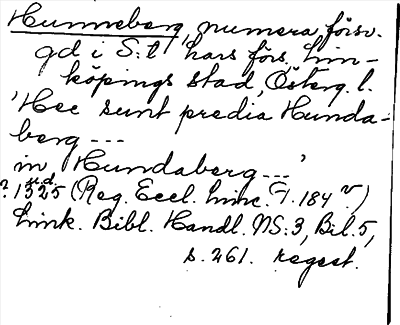 Hunneberg, numera försv.
gd i S:t Lars förs. Lin-
köpings stad, Österg. l.
'Hee sunt predia Hunda-
berg ---
in Hundaberg ---'
? 1325 u.d. (Reg. Eccl. Linc. I. 184 v.)
Link. Bibl. Handl. NS:3, Bil.5,
s. 261. regest.